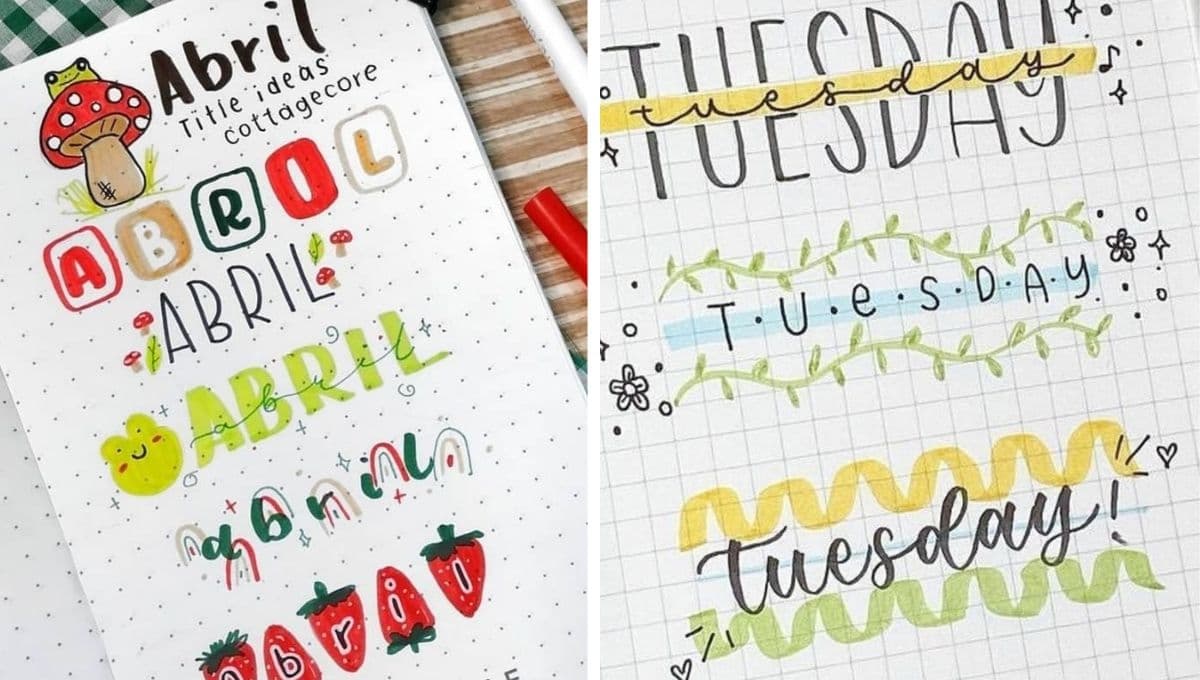 Abril
Title ideas
cottagecore
ABRIL
ABRIL
ABRIL
abril
abril
abril
TUESDAY
tuesday
TUESDAY
T·U·e·S·D·A·Y
tuesday!